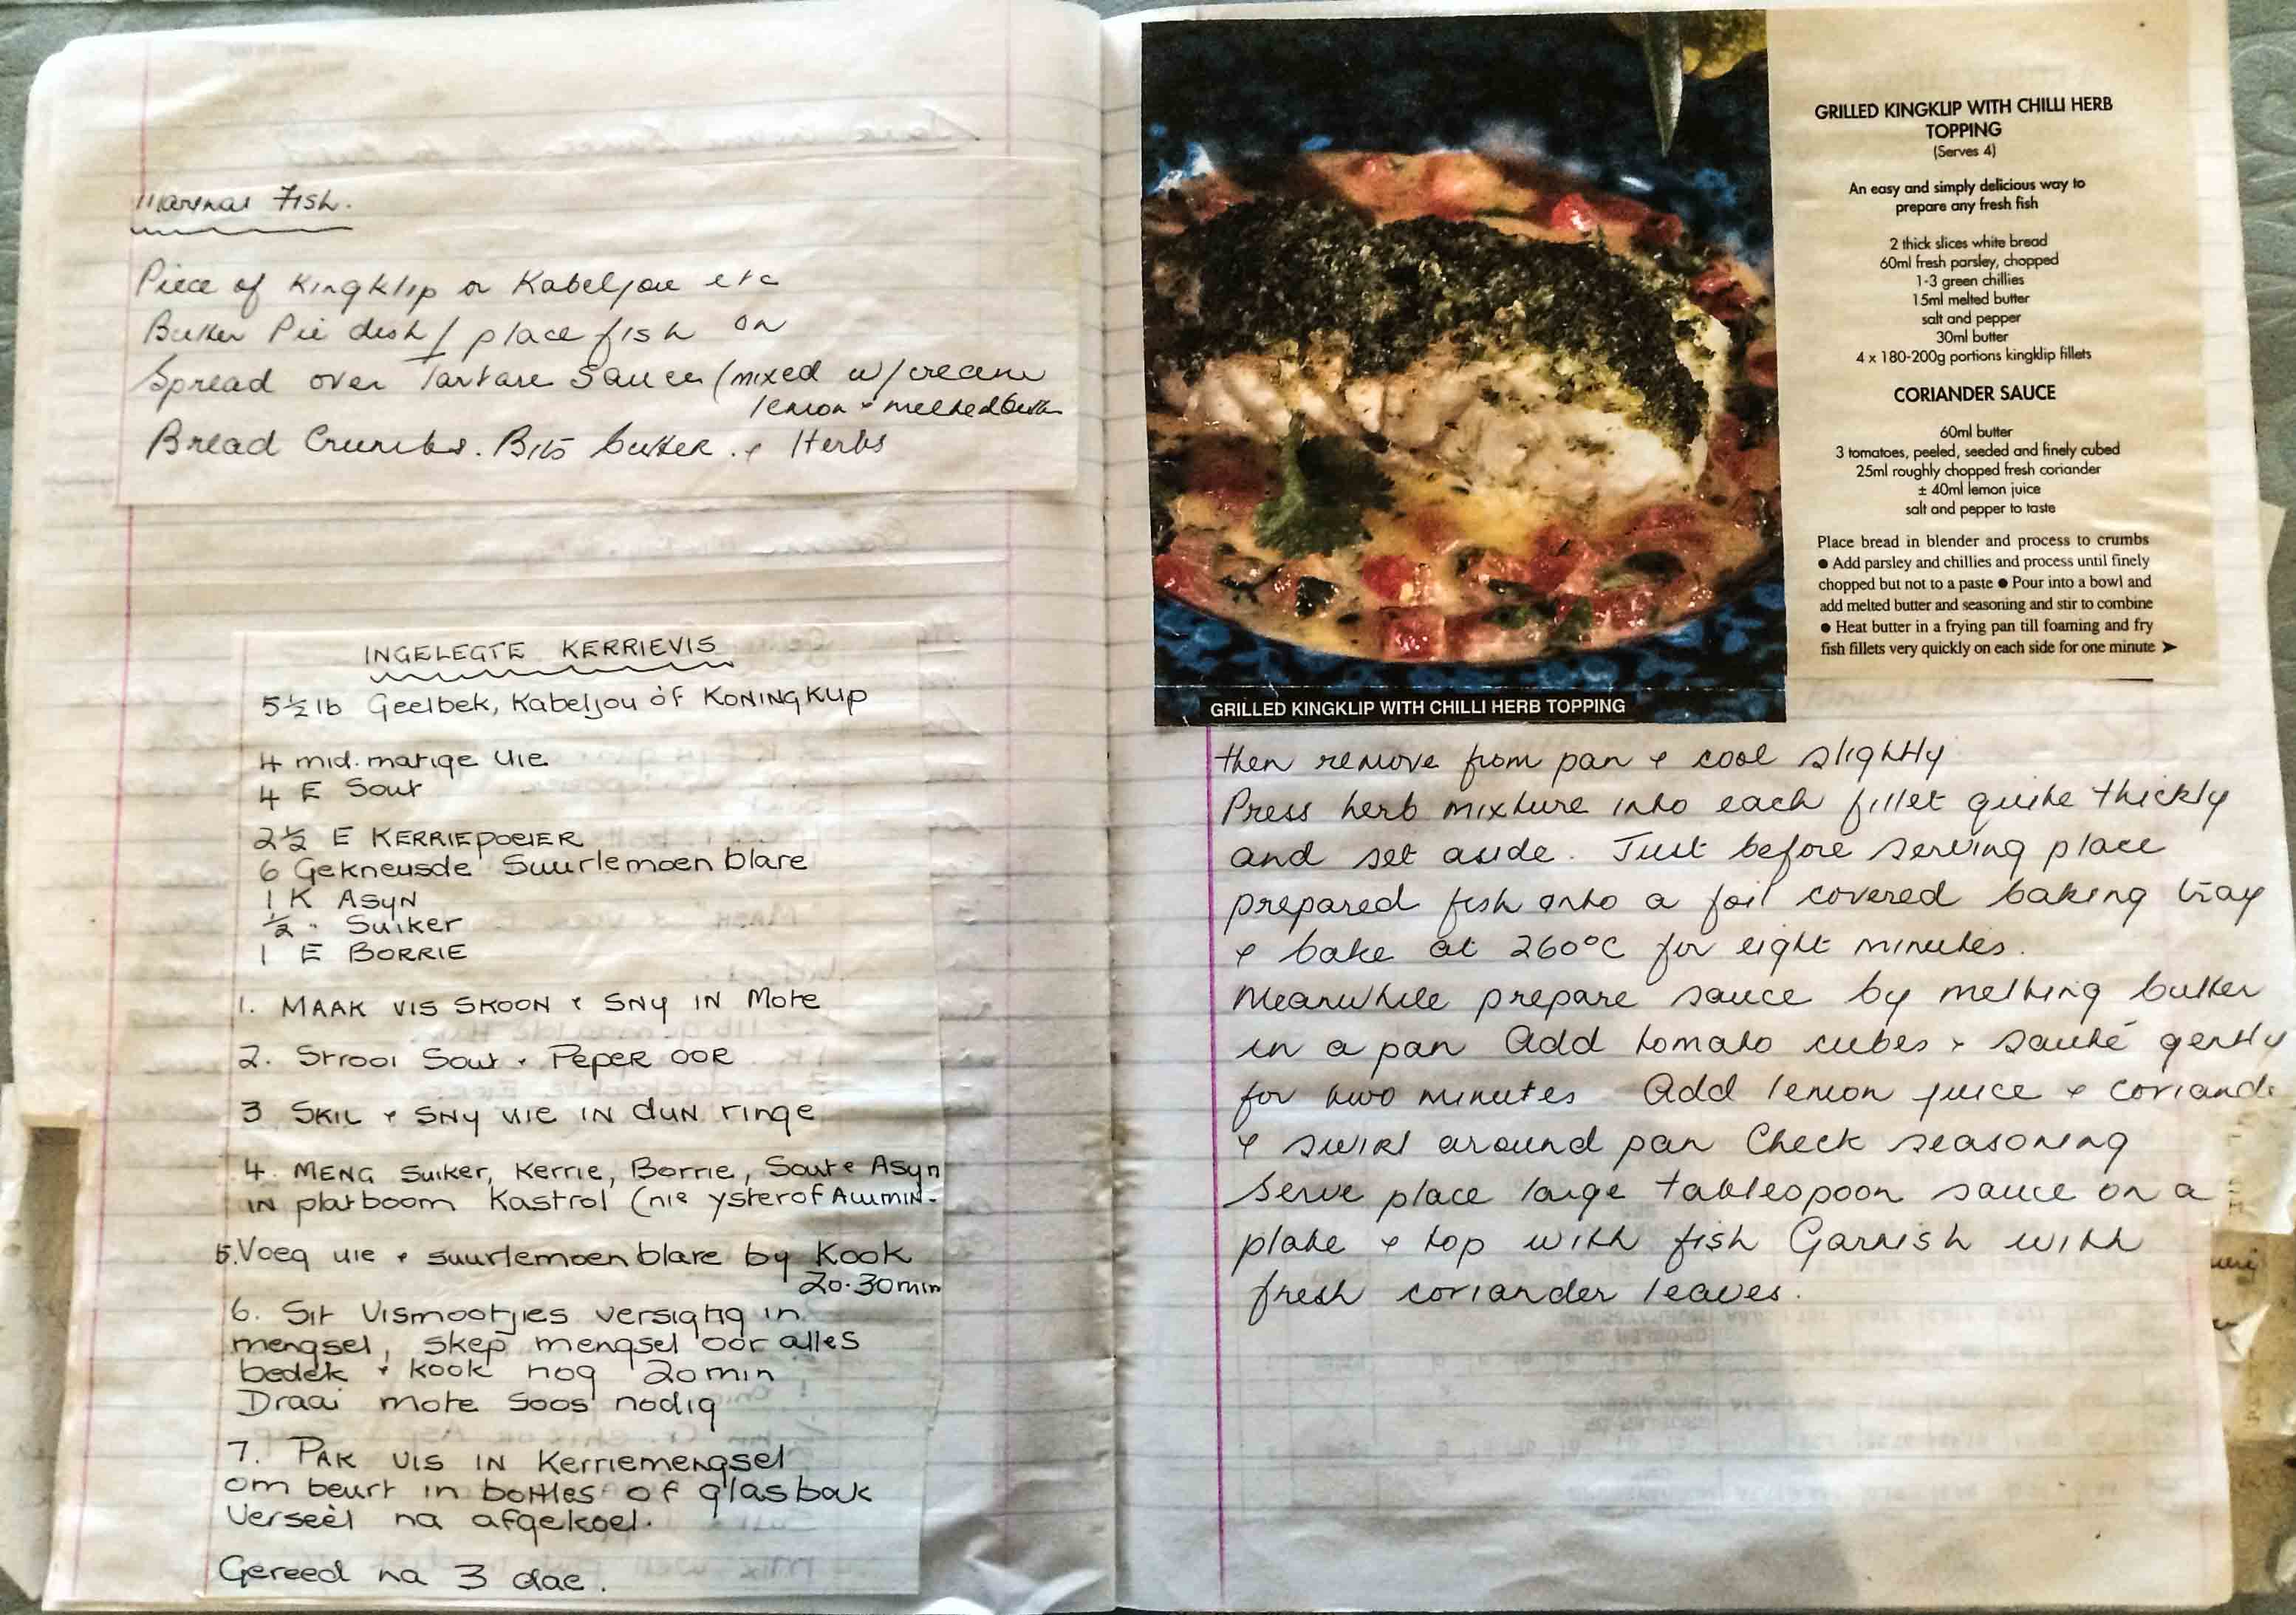 Marinas Fish.
Piece of Kingklip or Kabeljou etc
Butter Pie dish / place fish on
Spread over Tartare Sauce (mixed w/cream
lemon + melted butter
Bread Crumbs. Bits butter. + Herbs
INGELEGTE KERRIEVIS
5½ lb Geelbek, Kabeljou óf KONINGKLIP
4 mid. matige uie
4 E Sout
2½ E KERRIEPOEIER
6 Gekneusde Suurlemoen blare
1 K ASYN
½ " Suiker
1 E BORRIE
1. MAAK VIS SKOON + SNY IN Mote
2. Strooi Sout + PEPER OOR
3 SKIL + SNY UIE IN dUN ringe
4. MENG Suiker, Kerrie, Borrie, Sout + Asyn
IN platboom Kastrol (nie yster of ALUMIN.
5. Voeg uie + suurlemoen blare by Kook
20-30 min
6. Sit Vismootjies versigtig in
mengsel, skep mengsel oor alles
bedek + kook nog 20 min
Draai mote soos nodig
7. PAK VIS IN Kerriemengsel
om beurt in bottles of glasbak
Verseël na afgekoel.
Gereed na 3 dae.
GRILLED KINGKLIP WITH CHILLI HERB TOPPING
GRILLED KINGKLIP WITH CHILLI HERB
TOPPING
(Serves 4)
An easy and simply delicious way to
prepare any fresh fish
2 thick slices white bread
60ml fresh parsley, chopped
1-3 green chillies
15ml melted butter
salt and pepper
30ml butter
4 x 180-200g portions kingklip fillets
CORIANDER SAUCE
60ml butter
3 tomatoes, peeled, seeded and finely cubed
25ml roughly chopped fresh coriander
± 40ml lemon juice
salt and pepper to taste
Place bread in blender and process to crumbs
● Add parsley and chillies and process until finely
chopped but not to a paste ● Pour into a bowl and
add melted butter and seasoning and stir to combine
● Heat butter in a frying pan till foaming and fry
fish fillets very quickly on each side for one minute ➤
then remove from pan + cool slightly
Press herb mixture into each fillet quite thickly
and set aside. Just before serving place
prepared fish onto a foil covered baking tray
+ bake at 260°C for eight minutes.
Meanwhile prepare sauce by melting butter
in a pan Add tomato cubes + sauté gently
for two minutes Add lemon juice + coriande
+ swirl around pan Check seasoning
Serve place large tablespoon sauce on a
plate + top with fish Garnish with
fresh coriander leaves.